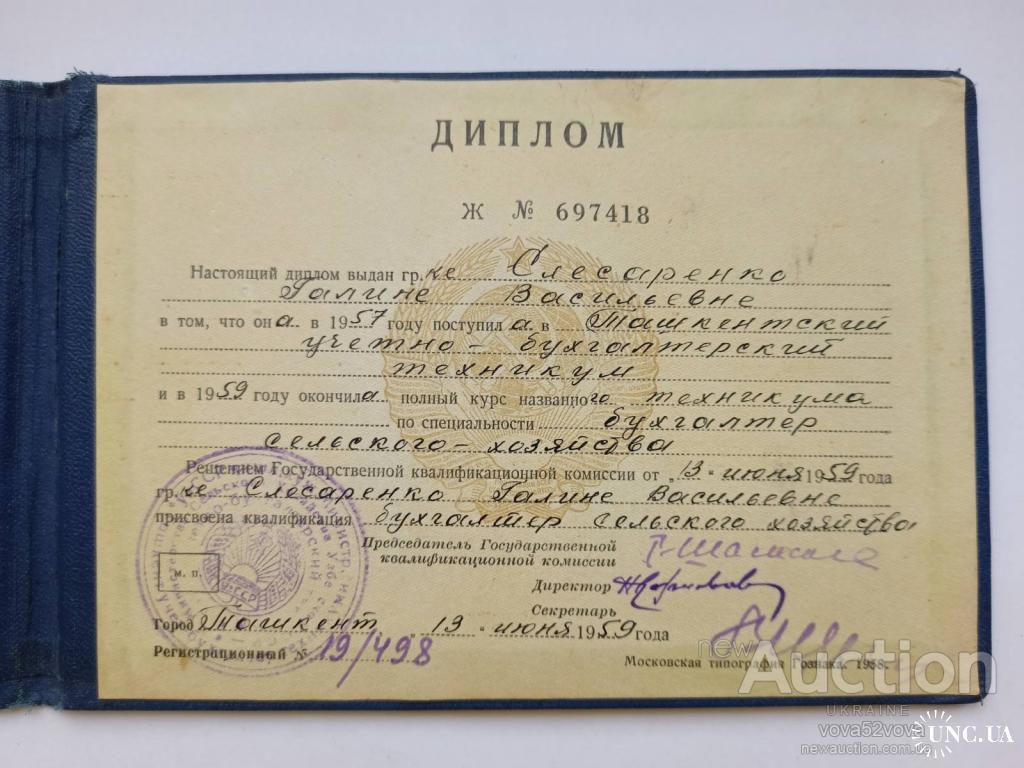 ДИПЛОМ
Ж № 697418
Настоящий диплом выдан гр.ке Слесаренко
Галине Васильевне
в том, что она в 1957 году поступила в Ташкентский
учетно-бухгалтерский
техникум
и в 1959 году окончила полный курс названного техникума
по специальности бухгалтер
сельского-хозяйства
Решением Государственной квалификационной комиссии от „13" июня 1959 года
гр.ке Слесаренко Галине Васильевне
присвоена квалификация бухгалтер сельского хозяйства
Председатель Государственной
квалификационной комиссии
Директор
Секретарь
м. п.
Город Ташкент „13" июня 1959 года
Регистрационный № 19/498
Московская типография Гознака. 1958.
newAuction
UKRAINE
vova52vova
newauction.com.ua
UNC.UA